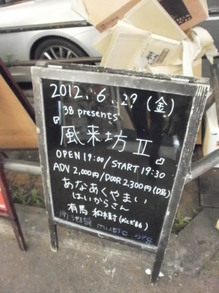 2012. 6. 29 (金)
38 presents
『風来坊 II』
OPEN 19:00 / START 19:30
ADV 2,000円 / DOOR 2,300円 (D別)
あなあくやまい
はいからさん
有馬和樹